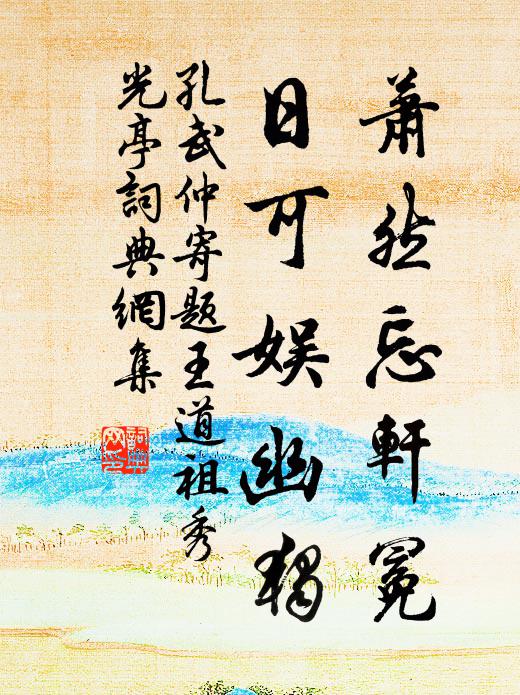 蕭然忘軒冕
日可娛幽獨
孔武仲寄題王道祖秀
光亭詞典網集